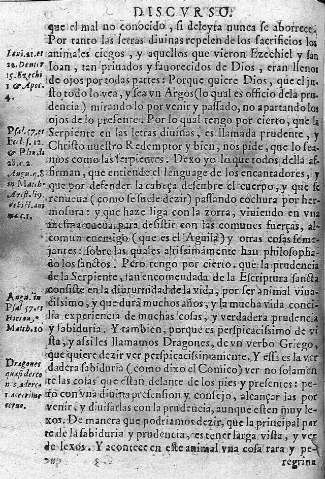 DISCVRSO.
que el mal no conocido, si deleyta nunca se aborrece.
Por tanto las letras divinas repelen de los sacrificios los
animales ciegos, y aquellos que vieron Ezechiel y san
Ioan, tan privados y favorecidos de Dios, eran llenos
de ojos por todas partes: Porque quiere Dios, que el ju-
sto todo lo vea, y sea vn Argos (lo qual es officio dela pru-
dencia) mirando lo por venir y passado, no apartando los
ojos de lo presente. Por lo qual tengo por cierto, que la
Serpiente en las letras divinas, es llamada prudente, y
Christo nuestro Redemptor y bien, nos pide, que lo sea-
mos como las serpientes. Dexo yo lo que todos della af-
firman, que entiende el lenguage de los encantadores, y
que por defender la cabeça defcubre el cuerpo, y que se
renueva (como se suele dezir) passando cochura por her-
mosura: y que haze liga con la zorra, viviendo en vna
mesma cueva, para desistir con las comunes fuerças, al
comun enemigo (que es el Aguila) y otras cosas seme-
jantes: sobre las quales altissimamente han philosopha-
do los sanctos. Pero tengo por cierto, que la prudencia
de la Serpiente, tan encomendada de la Escriptura sancta
consiste en la diuturnidad de la vida, por ser animal viva-
cissimo, y que dura muchos años, y la mucha vida conci-
lia experiencia de muchas cosas, y verdadera prudencia
y sabiduria. Y tambien, porque es perspicacissimo de vi
sta, y assi les llamamos Dragones, de vn verbo Griego,
que quiere dezir ver perspicacissimamente. Y essa es la ver
dadera sabiduria (como dixo el Comico) ver no solamen-
te las cosas que estan delante de los pies y presentes: pe-
ro con vna divina prevension y consejo, alcançar las por
venir, y divisarlas con la prudencia, aunque esten muy le-
xos. De manera que podriamos dezir, que la principal par
te de la sabiduria y prudencia, es tener larga vista, y ver
de lexos. Y acontece en este animal vna cosa rara y pe-
regrina
Dragones